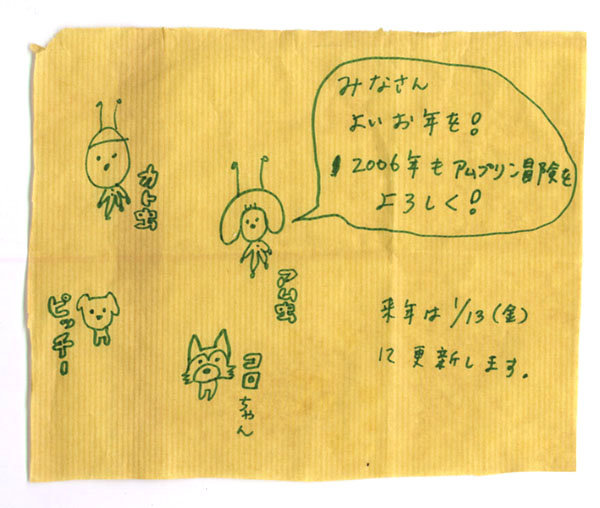 みなさん
よいお年を!
2006年もアムプリン冒険を
よろしく!
カト虫
アム虫
ピッチー
コロちゃん
来年は1/13(金)
に更新します。